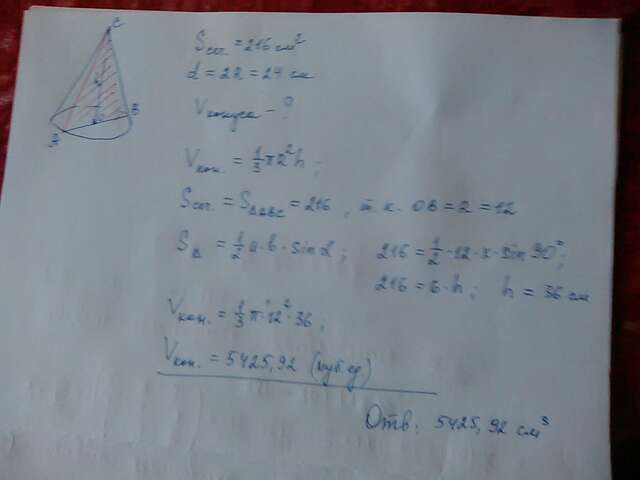 C
B
A
Sсеч. = 216 см²
d = 2R = 24 см
Vконуса - ?
Vкон. = 1/3 πR²h;
Sсеч. = S△ABC = 216, т.к. OB = R = 12
S△ = 1/2 a·b·sin α; 216 = 1/2·12·h·sin 90°;
216 = 6·h; h = 36 см
Vкон. = 1/3 π·12²·36;
Vкон. = 5425,92 (куб.ед)
Отв: 5425,92 см³